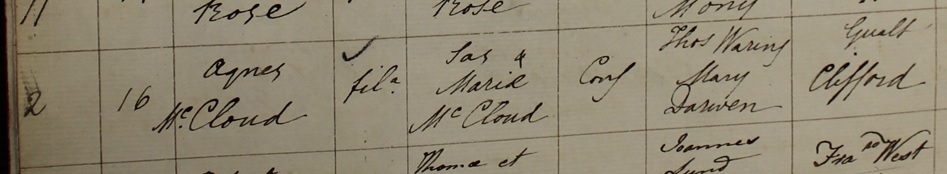 11 Rose Rose Mony
2 16 Agnes McCloud fila. Jas & Marie McCloud Conf Thos Waring Mary Darwen Gualt Clifford
Thomæ et Joannes Lund Fra no West